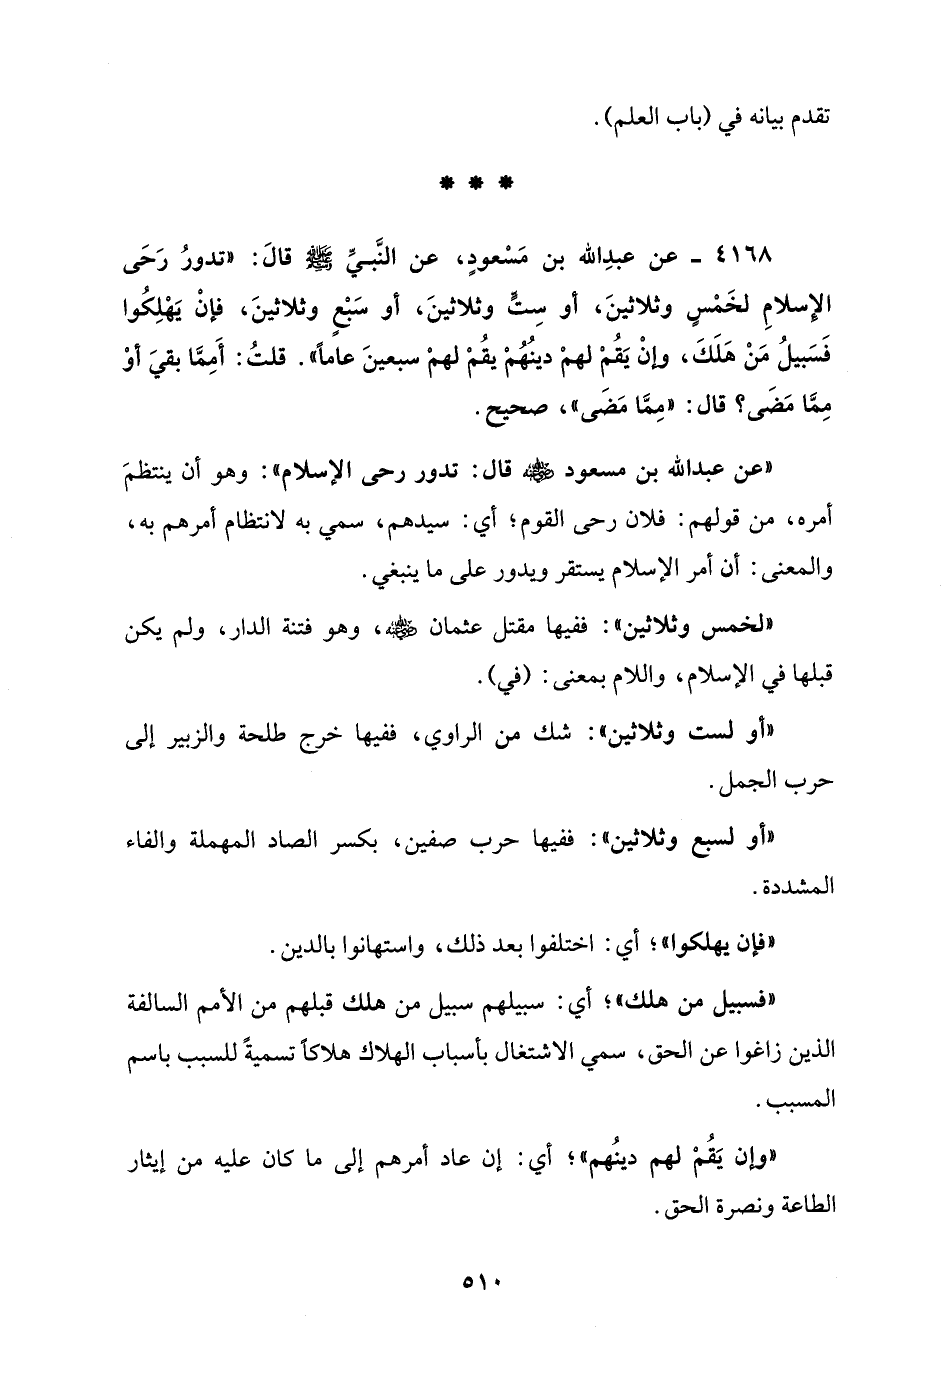 تقدم بيانه في (باب العلم).
* * *
٤١٦٨ - عن عبدِالله بن مَسْعودٍ، عن النَّبيِّ ﷺ قالَ: «تدورُ رَحَى
الإسلامِ لخَمْسٍ وثلاثينَ، أو سِتٍّ وثلاثينَ، أو سَبْعٍ وثلاثينَ، فإنْ يَهْلِكُوا
فَسَبيلُ مَنْ هَلَكَ، وإنْ يَقُمْ لهمْ دينُهُمْ يقُمْ لهمْ سبعينَ عاماً». قلتُ: أَمِمَّا بقيَ أوْ
مِمَّا مَضَى؟ قال: «مِمَّا مَضَى»، صحيح.
«عن عبدالله بن مسعود ﵁ قال: تدور رحى الإسلام»: وهو أن ينتظمَ
أمره، من قولهم: فلان رحى القوم؛ أي: سيدهم، سمي به لانتظام أمرهم به،
والمعنى: أن أمر الإسلام يستقر ويدور على ما ينبغي.
«لخمس وثلاثين»: ففيها مقتل عثمان ﵁، وهو فتنة الدار، ولم يكن
قبلها في الإسلام، واللام بمعنى: (في).
«أو لست وثلاثين»: شك من الراوي، ففيها خرج طلحة والزبير إلى
حرب الجمل.
«أو لسبع وثلاثين»: ففيها حرب صفين، بكسر الصاد المهملة والفاء
المشددة.
«فإن يهلكوا»؛ أي: اختلفوا بعد ذلك، واستهانوا بالدين.
«فسبيل من هلك»؛ أي: سبيلهم سبيل من هلك قبلهم من الأمم السالفة
الذين زاغوا عن الحق، سمي الاشتغال بأسباب الهلاك هلاكاً تسميةً للسبب باسم
المسبب.
«وإن يَقُمْ لهم دينُهم»؛ أي: إن عاد أمرهم إلى ما كان عليه من إيثار
الطاعة ونصرة الحق.
٥١٠